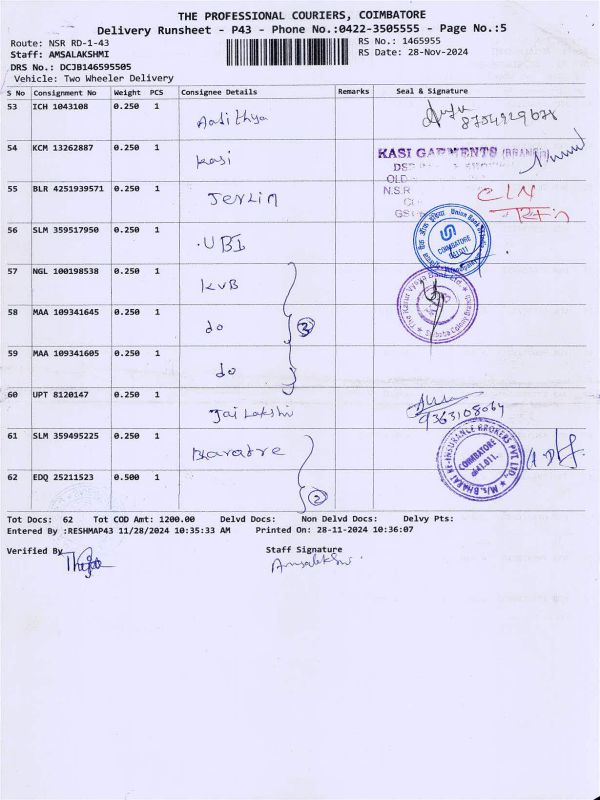 THE PROFESSIONAL COURIERS, COIMBATORE
Delivery Runsheet - P43 - Phone No.:0422-3505555 - Page No.:5
Route: NSR RD-1-43 RS No.: 1465955
Staff: AMSALAKSHMI RS Date: 28-Nov-2024
DRS No.: DCJB146595505
Vehicle: Two Wheeler Delivery
S No Consignment No Weight PCS Consignee Details Remarks Seal & Signature
53 ICH 1043108 0.250 1 Aadithya 8754929678
54 KCM 13262887 0.250 1 Kasi KASI GARMENTS (BRANCH)
OLD
55 BLR 4251939571 0.250 1 Jerlin N.S.R
56 SLM 359517950 0.250 1 UBI Union Bank COIMBATORE 641011
57 NGL 100198538 0.250 1 KVB The Karur Vysya Bank Ltd
58 MAA 109341645 0.250 1 do 3
59 MAA 109341605 0.250 1 do
60 UPT 8120147 0.250 1 Jai Lakshmi 9363108064
61 SLM 359495225 0.250 1 Bharatre M/s. BHARAT RE-INSURANCE BROKERS PVT. LTD., COIMBATORE 641.011.
62 EDQ 25211523 0.500 1 2
Tot Docs: 62 Tot COD Amt: 1200.00 Delvd Docs: Non Delvd Docs: Delvy Pts:
Entered By :RESHMAP43 11/28/2024 10:35:33 AM Printed On: 28-11-2024 10:36:07
Verified By Staff Signature
Amsalakshmi